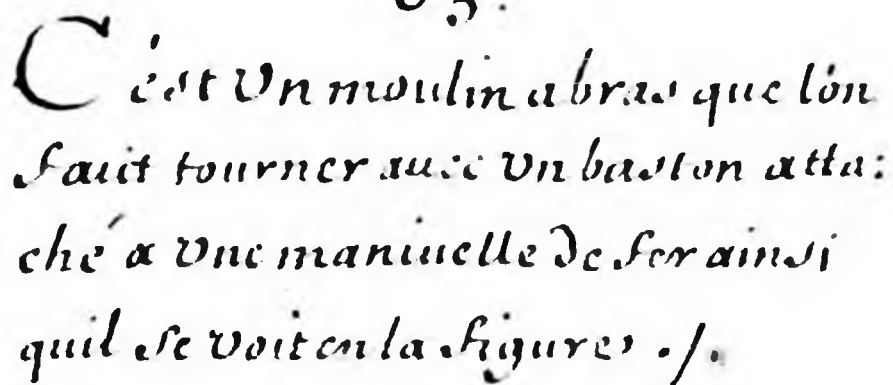 C'est Vn moulin a bras que l'on
fait tourner auec Vn baston atta:
ché a Vne maniuelle de fer ainsi
quil se voit en la figure ./.